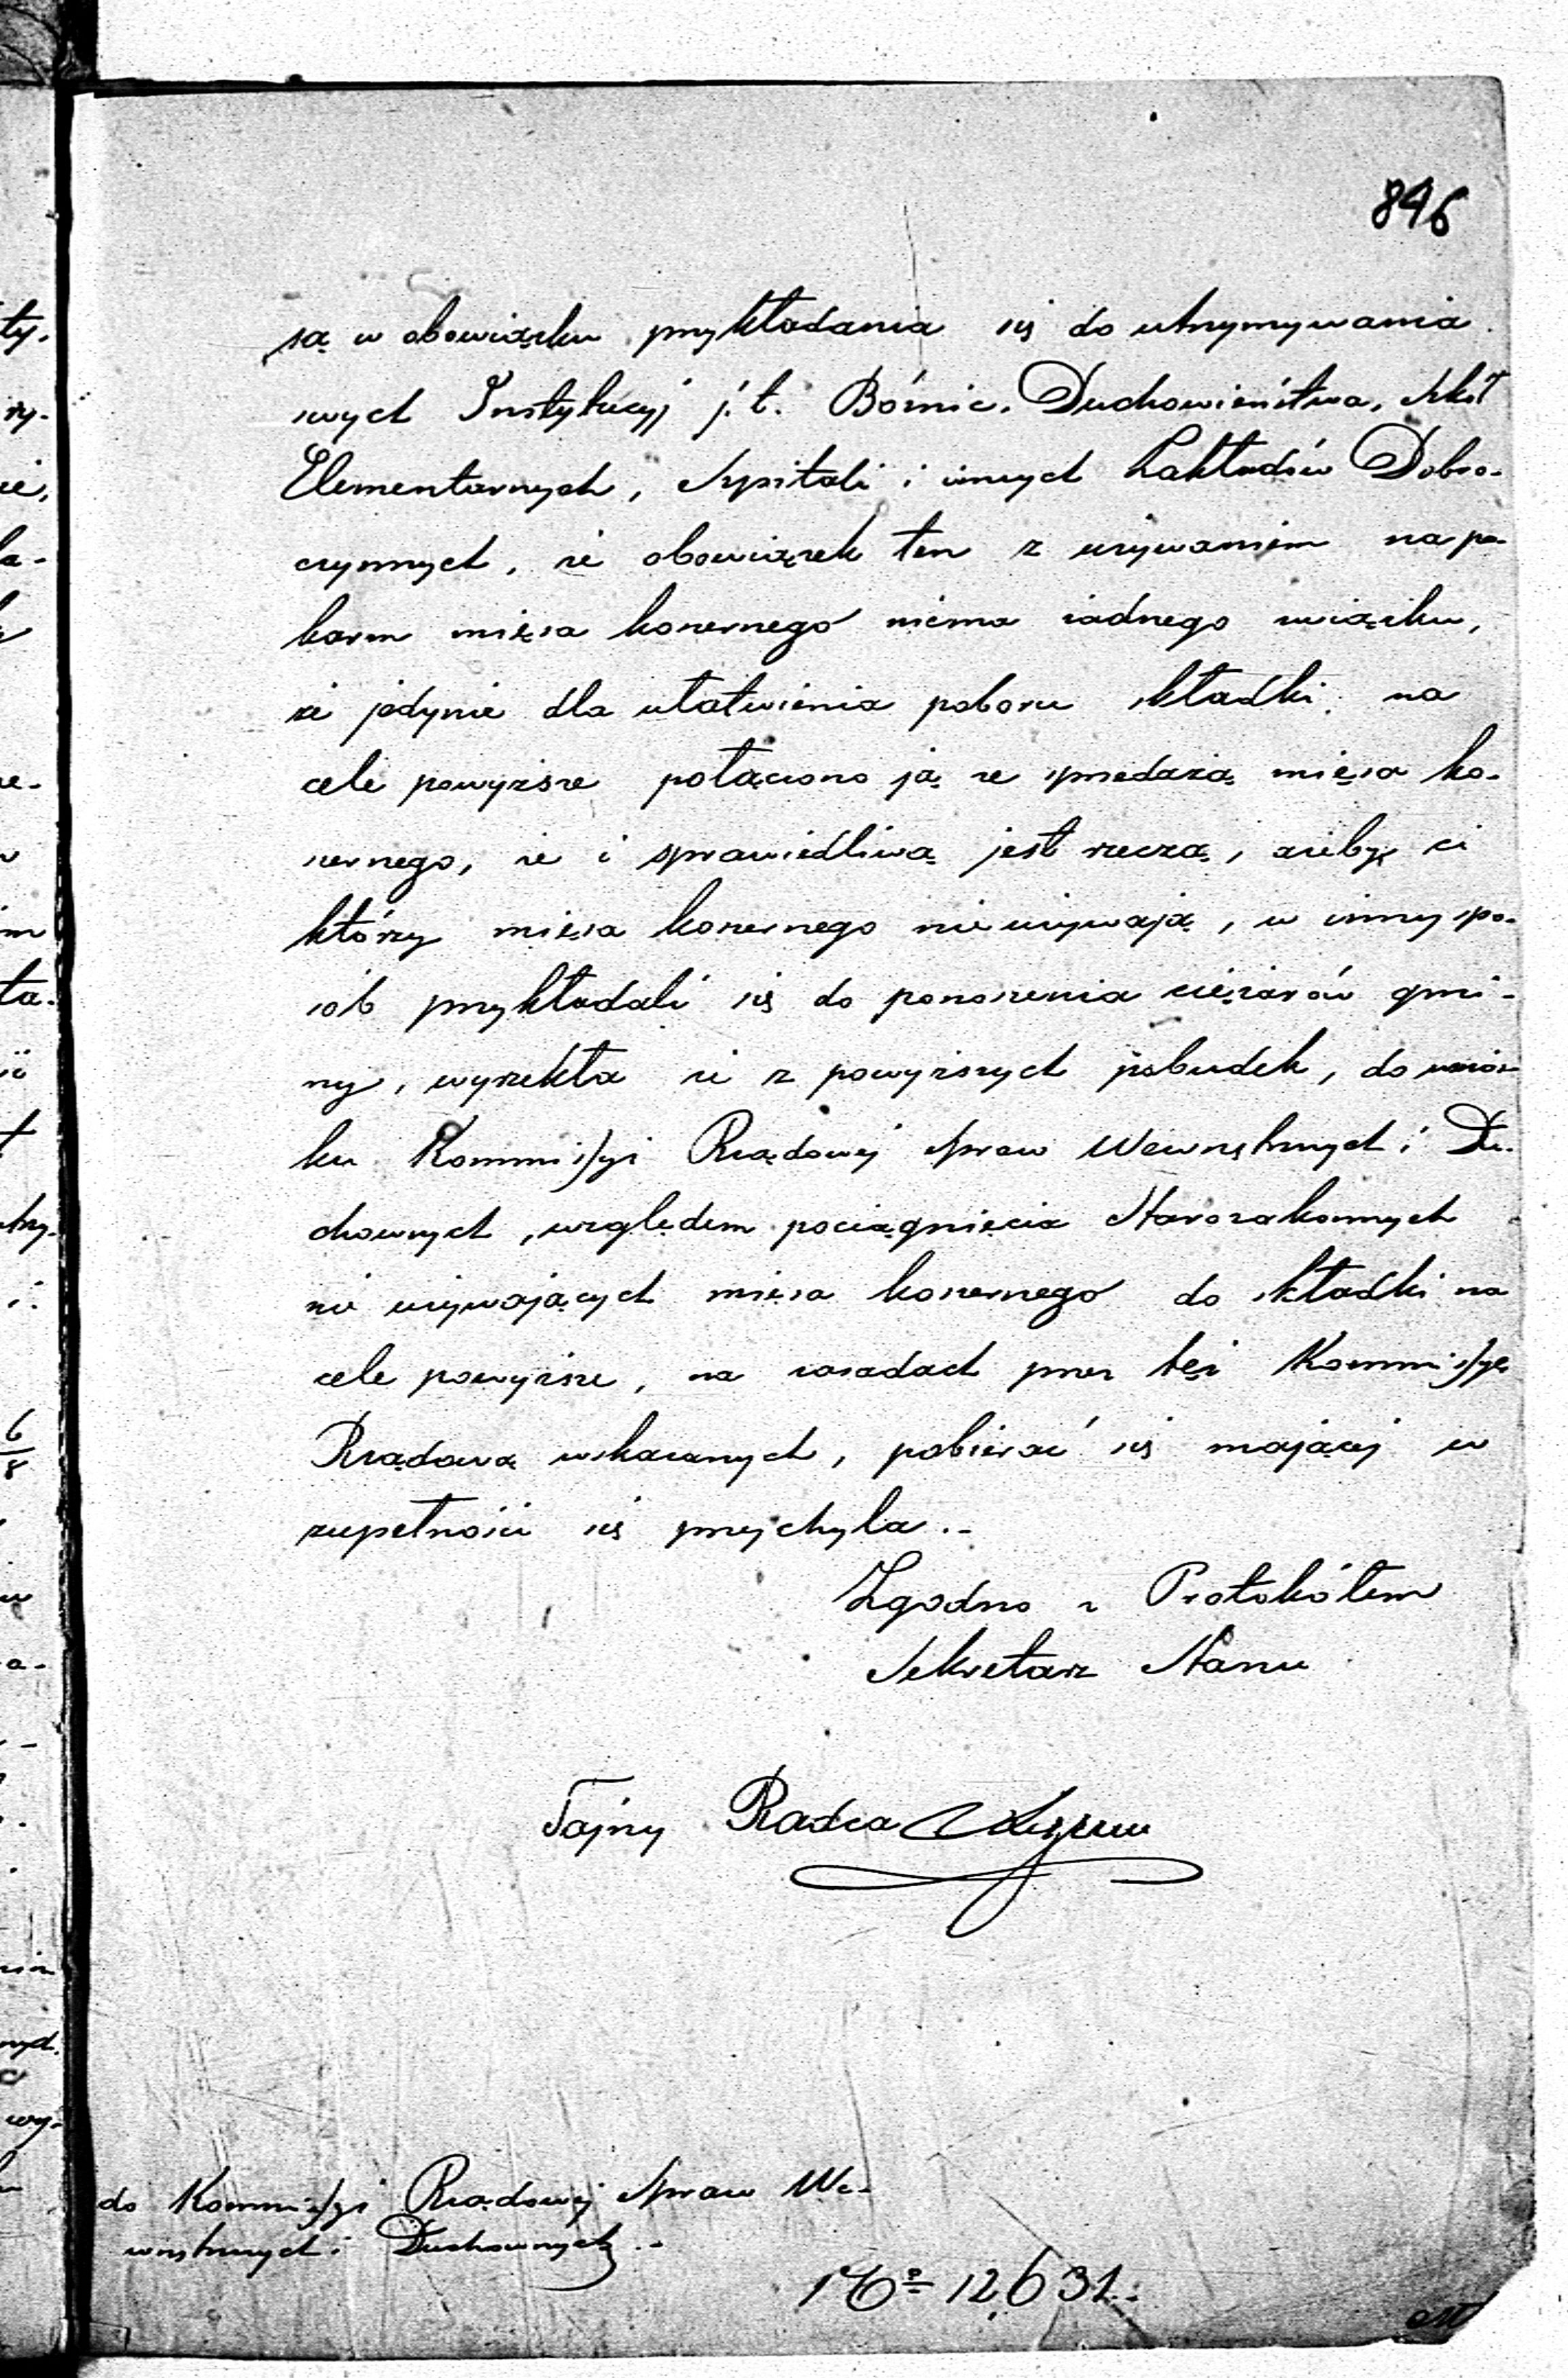 846
są w obowiązku przykładania się do utrzymywania
swych Instytucyj j. t. Bóżnic, Duchowieństwa, Szkół
Elementarnych, Szpitali i innych Zakładów Dobro-
czynnych, że obowiązek ten z używaniem na po-
karm mięsa koszernego niema żadnego związku,
że jedynie dla ułatwienia poboru składki na
cele powyższe połączono ją ze sprzedażą mięsa ko-
szernego, że i sprawiedliwą jest rzeczą, ażeby ci
którzy mięsa koszernego nieużywają, w inny spo-
sób przykładali się do ponoszenia ciężarów gmi-
ny, wyrzekła że z powyższych pobudek, do wnios-
ku Kommissyi Rządowej Spraw Wewnętrznych i Du-
chownych, względem pociągnięcia Starozakonnych
nie używających mięsa koszernego do składki na
cele powyższe, na zasadach przez tęż Kommissyę
Rządową wskazanych, pobierać się mającej w
zupełności się przychyla..
Zgodno z Protokółem
Sekretarz Stanu
Tajny Radca
do Kommissyi Rządowej Spraw We-
wnętrznych i Duchownych..
No 12,631.